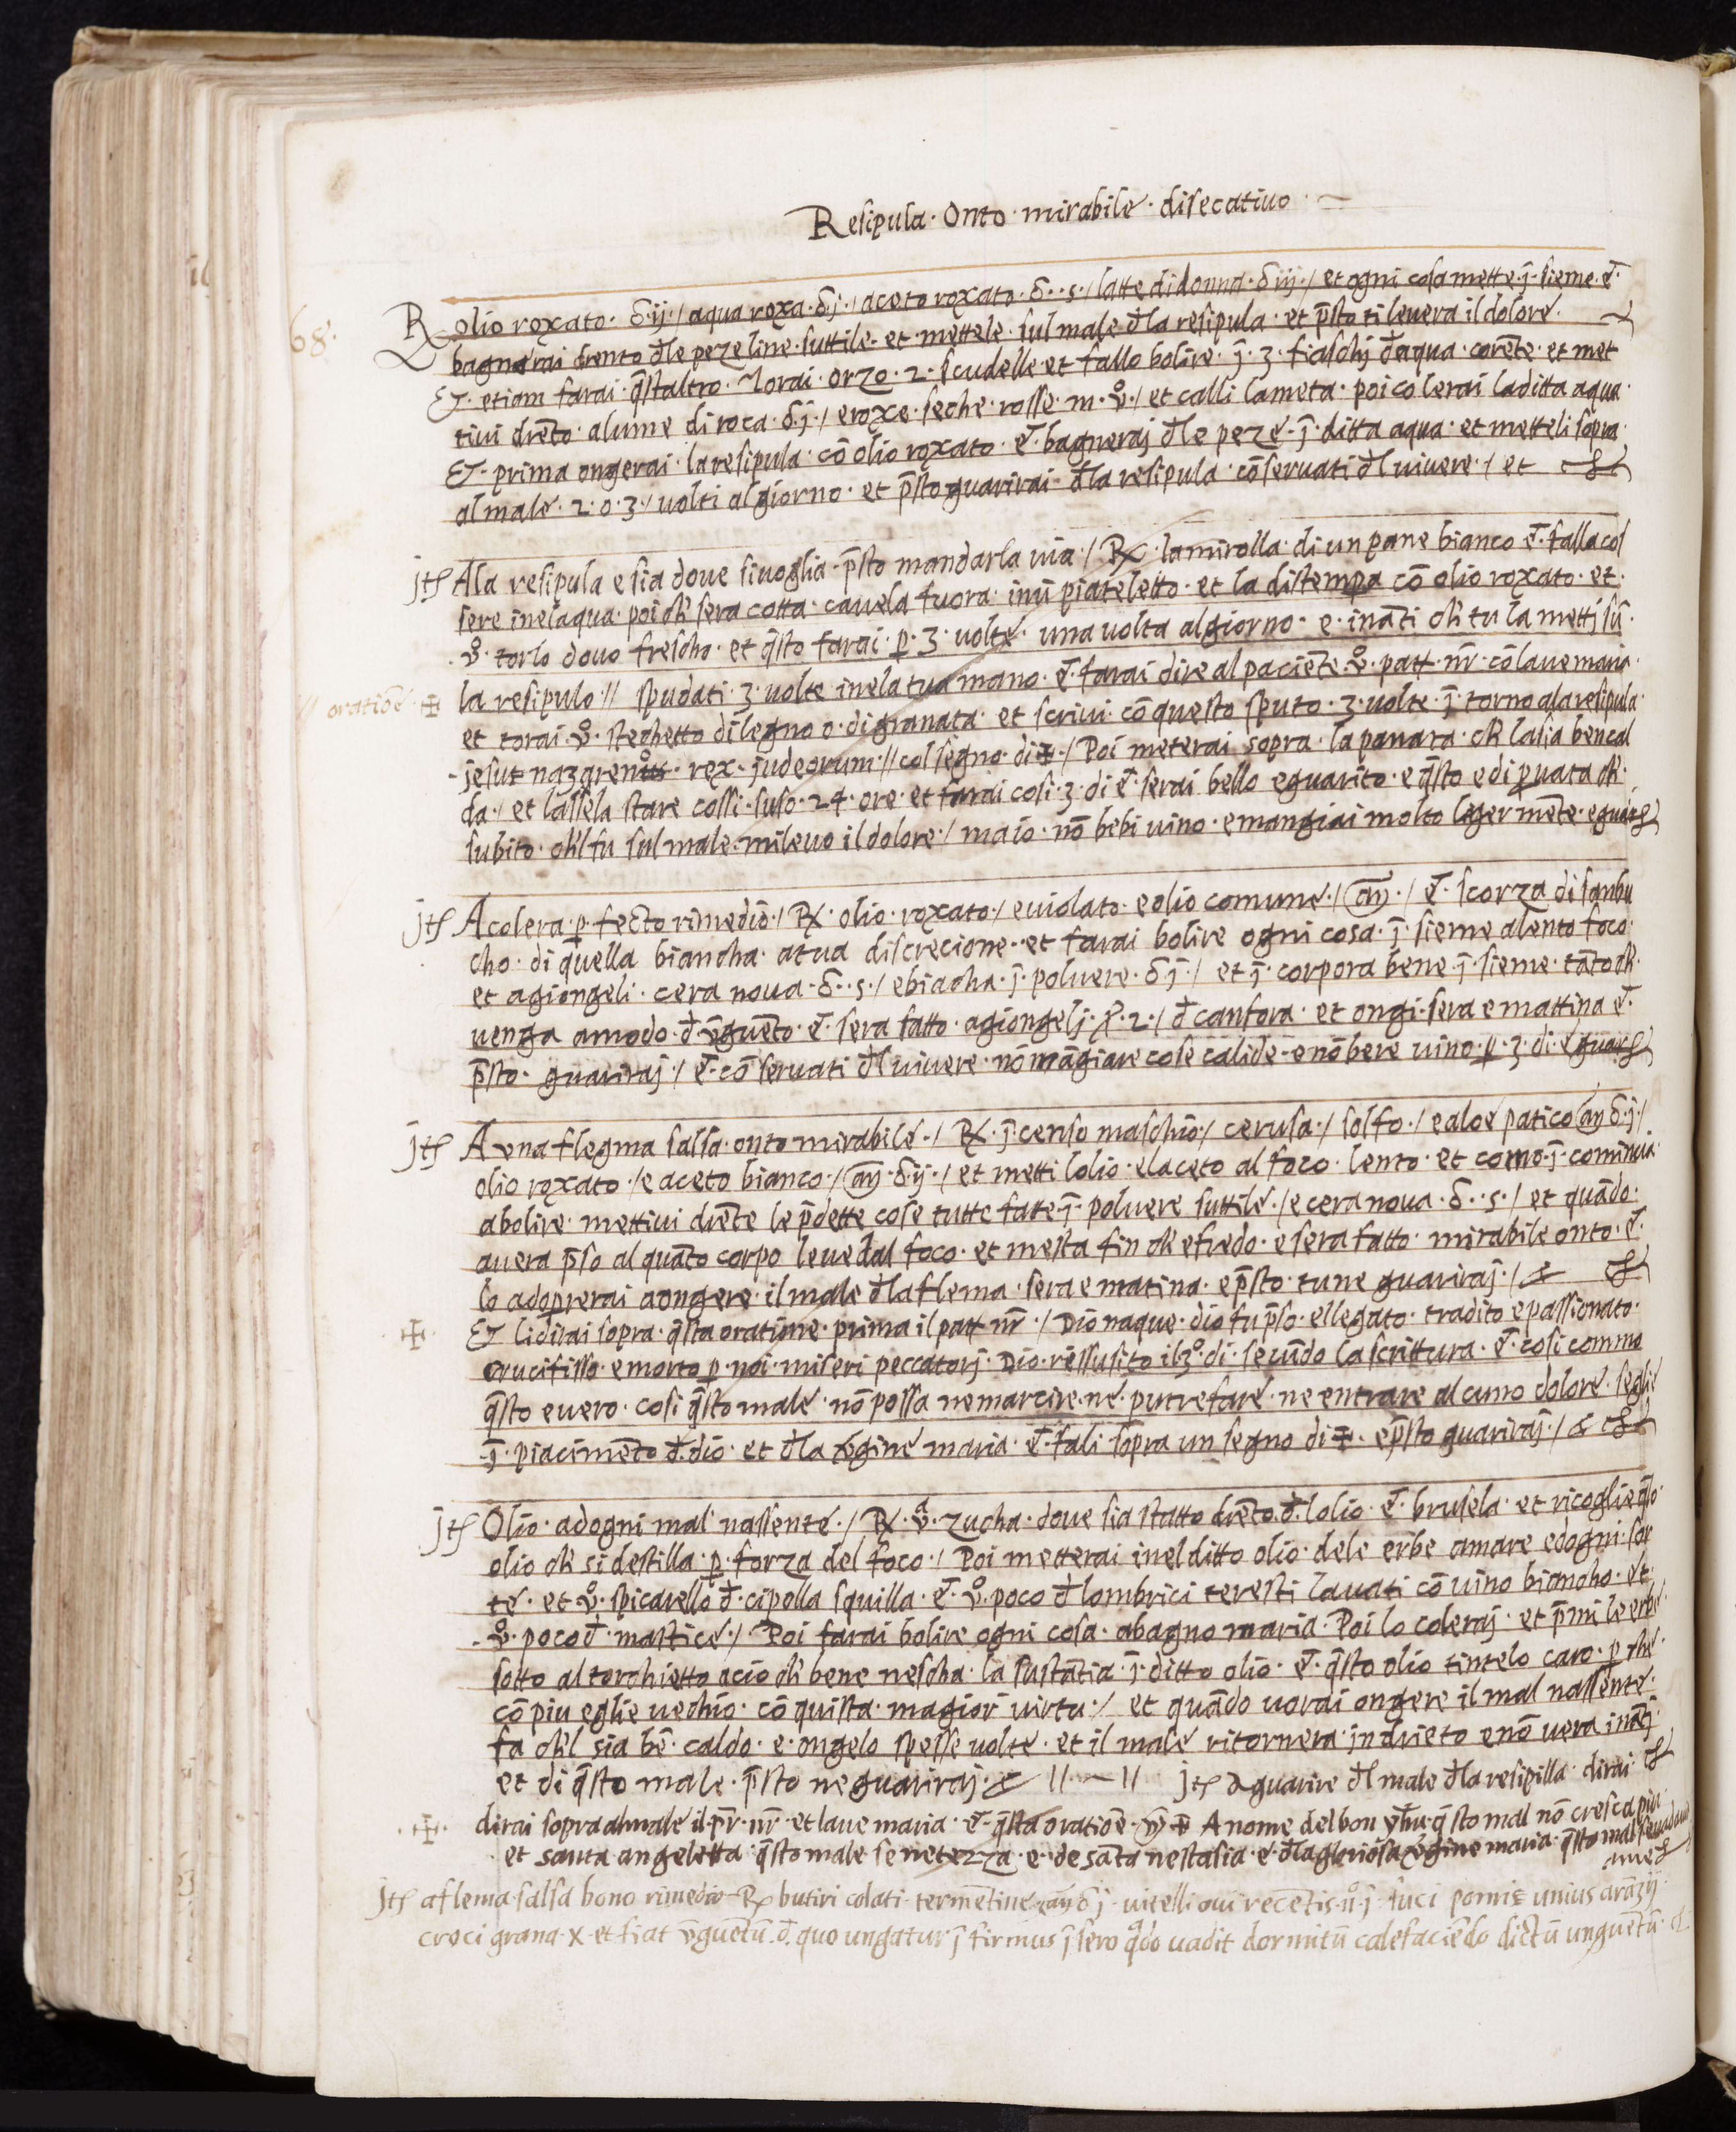 Resipula · Onto · mirabile · disecativo
68.
R olio roxato · δ·ij·/ aqua roxa · δ·j·/ aceto roxato · δ··s·/ latte di donna · δ·iij·/ et ogni cosa mette · j̄ · sieme · et̄
bagnarai drento đle peze line · suttile · et mettele · sul male · đla resipula · et p̄sto ti levera il dolore ·
Et · etiam farai · q̄staltro · Torai · orzo · 2 · scudelle et fallo bolire · j̄ · 3 · fiaschj đaqua · corēte · et met
tivi drēto · alume di roca · δ·j·/ e roxe · seche · rosse · m · v̊·/ et calli la meta · poi colerai la ditta aqua ·
Et · prima ongerai · la resipula · cō olio roxato · et̄ · bagneraj đle peze · j̄ · ditta aqua · et metteli sopra
al male · 2 · o · 3 ·/ volti al giorno · et p̄sto guarirai · đla resipula · cōservati đl vivere ·/ et
jts Ala resipula e sia dove si voglia · p̄sto mandarla via ·/ Rx · la mirolla · di un pane bianco et̄ · falla col
sere inelaqua · poi ch' sera cotta · cavela fuora · inū piateletto · et la distempa cō olio roxato · et ·
· v̊ · torlo dovo frescho · et q̄sto farai · p · 3 · volte · una volta al giorno · e · ināti ch' tu la mettj sū
// oratiōe · ✠ la resipulo // spudati · 3 · volte inela tua mano · et̄ · farai dire al paciēte · v̊ · patt · nr̄ · cō lavemaria ·
et torai · v̊ · stechetto di legno o · di granata · et scrivi cō questo sputo · 3 · volte · j̄ · torno ala resipula ·
· jesut nazarenus · rex · judeorum · // col segno · di ✠ ·/ Poi meterai sopra · la panata · ch' la sia ben cal
da ·/ et lassela stare cossi · suso · 24 · ore · et farai cosi · 3 · di et̄ · serai bello e guarito · e q̄sto e di pvata ch' ·
subito · ch'l fu sul male · mi levo il dolore ·/ ma io · nō bebi vino · e mangiai molto legermēte · e guarj
jts A colera · p · fecto rimedio ·/ Rx · olio · roxato ·/ e violato · e olio comune ·/ añ ·/ et̄ · scorza di sanbu
cho · di quella biancha · a tua discrecione · et farai bolire ogni cosa · j̄ · sieme a lento foco
et agiongeli · cera nova · δ··s·/ e biacha · j̄ · polvere · δ·j·/ et j̄ · corpora bene · j̄ · sieme · tāto ch' ·
venga a modo · đ · v̄guēto · et̄ · sera fatto · agiongelj · · 2 ·/ đ canfora · et ongi · sera e mattina et̄ ·
p̄sto · guariraj ·/ et̄ · cō servati đl vivere · nō māgiare cose calide · e nō bere vino · p · 3 · di e guarj
jts A vna flegma salsa · onto mirabile ·/ Rx · j̄ · censo maschio ·/ cerusa ·/ solfo ·/ e aloe patico añ δ·j·/
olio roxato ·/ e aceto bianco ·/ añ · δ·ij·/ et metti lolio · e laceto al foco · lento · et como · j̄ · comincia
a bolire · mettivi drēte le p̄dette cose tutte fatte · j̄ · polvere suttile ·/ e cera nova · δ··s·/ et quādo ·
avera p̄so al quāto corpo leve dal foco · et mesta fin ch' e fredo · e sera fatto · mirabile onto · et̄ ·
lo adoprerai a ongere · il male đla flema · sera e matina · e p̄sto · tu ne guariraj ·/
✠ Et li dirai sopra · q̄sta oratione · prima il patt nr̄ ·/ Dio naque · dio fu p̄so · e llegato · tradito e passionato ·
crucifisso · e morto p · noi · miseri peccatorj · Dio · ressusito il 3° · di · secūdo la scrittura · et̄ · cosi commo
q̄sto e vero · cosi q̄sto male · nō possa ne marcire · ne · putrefare · ne entrare alcuno dolore · seglie
· j̄ · piacimēto đ · dio · et đla regine maria · et̄ · fali sopra un segno di ✠ · e p̄sto guariraj ·/
jts Olio · adogni mal' nassente ·/ Rx · v̊ · zucha · dove sia statto drēto · đ · lolio · et̄ · brusela · et ricoglie q̄lo
olio ch' si destilla · p · forza del foco ·/ Poi metterai inel ditto olio · dele erbe amare e dogni · sor
te · et v̊ · spicarello đ · cipolla squilla · et̄ · v̊ · poco đ lombrici teresti lavati cō vino biancho · et
· v̊ · poco đ · mastice ·/ Poi farai bolire ogni cosa · abagno maria · Poi lo coleraj · et p̄mi le erbe
sotto al torchietto acio ch' bene nescha · la sustātia · j̄ · ditto olio · et̄ · q̄sto olio tintelo caro · p che
cō piu eglie vechio · cō quista · magior virtu ·/ et quādo vorai ongere il mal nassente ·
fa ch'l sia bē · caldo · e · ongelo spesse volte · et il male ritornera · indrieto e nō vera inātj
et di q̄sto male · p̄sto ne guariraj · // — // jts A guarire đl male đla resipilla · dirai
✠ dirai sopra al male il · pr̄ · nr̄ · et lave maria · et̄ · q̄sta oratiōe · ✠ A nome del bon yh̄u · q̄sto mal nō cresca piu
· et santa angeletta · q̄sto male · se neterza · e · de sāta nestasia · e · đla gloriosa regine maria · q̄sto mal se vada
jts a flema · salsa bono rimedio · Rx butiri colati · termētine · añ δ·j · vitelli ovi recētis · n° · j̄ · suci pomis unius arāzij ·
croci grana · x · et fiat v̄guētū · đ · quo ungatur j̄firmus j̄ sero q̄do vadit dormitū calefaciēdo dictū unguētū ·